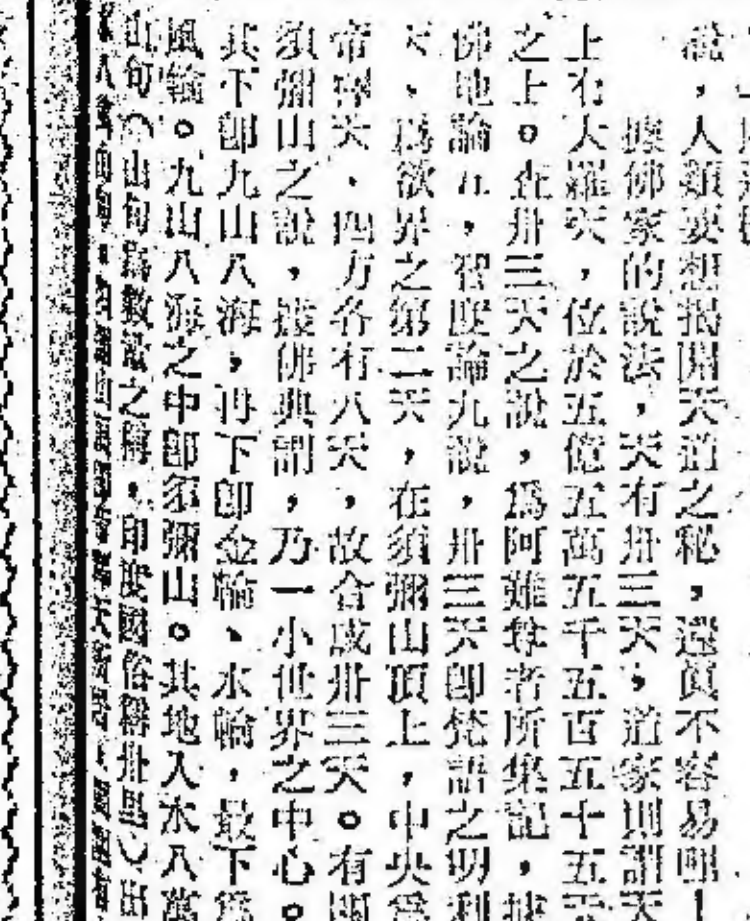 說,人類要想揭開天道之秘,還眞不容易呢!
據佛家的說法,天有卅三天,道家則謂天
上有大羅天,位於五億五萬五千五百五十五天
之上。查卅三天之說,爲阿難尊者所集記,據
佛地論五,智度論九說,卅三天卽梵語之忉利
天、爲欲界之第二天,在須彌山頂上,中央爲
帝釋天,四方各有八天,故合成卅三天。有關
須彌山之說,按佛典謂,乃一小世界之中心。
其下卽九山八海,再下卽金輪、水輪,最下爲
風輪。九山八海之中卽須彌山。其地入水八萬
由旬(由旬爲數量之稱,印度國俗稱卅里)出